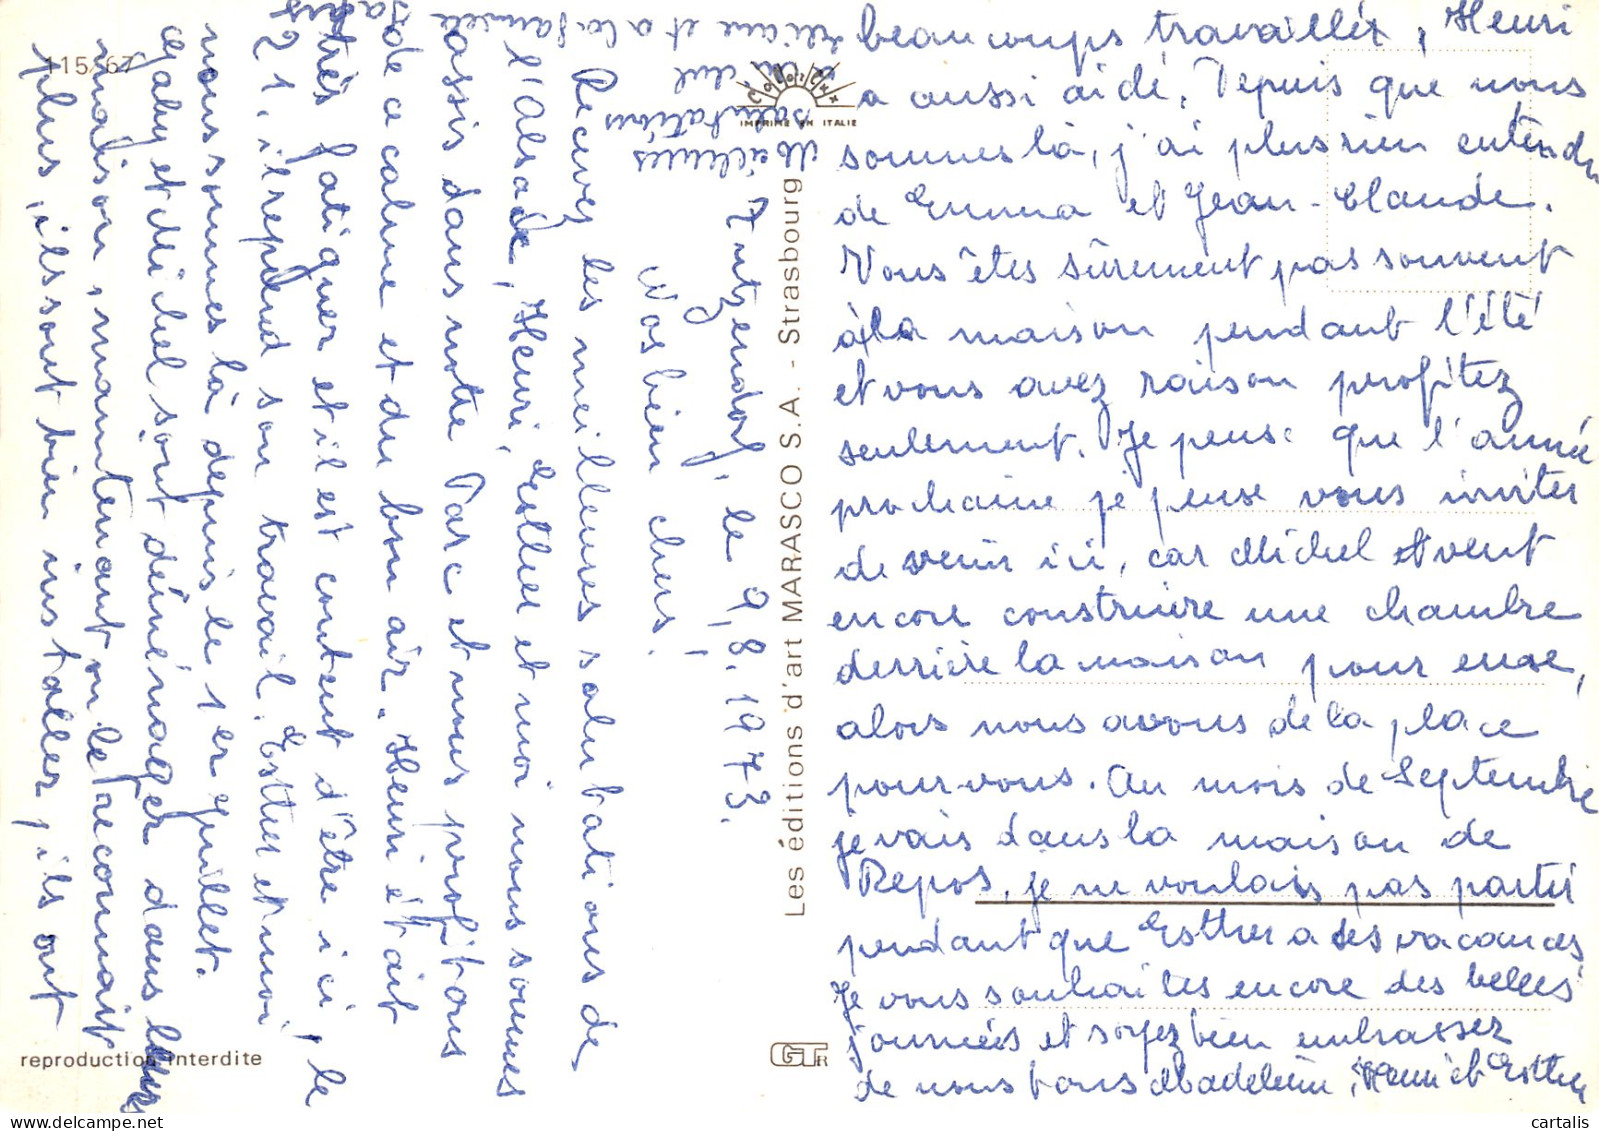 Zutzendorf, le 9.8.1973.
Nos bien chers!
Recevez les meilleures salutations de
l'Alsace, Henri, Esther et moi nous sommes
assis dans notre Parc et nous profitons
de ce calme et du bon air. Henri était
très fatiguer et il est content d'être ici, le
21. il reprend son travail. Esther et moi
nous sommes là depuis le 1er Juillet.
Gaby et Michel sont déménager dans leur
maison, maintenant on le reconnait
plus, ils sont bien installer, ils ont
beaucoups travailler, Henri
a aussi aidé. Depuis que nous
sommes là, j'ai plus rien entendu
de Emma et Jean-Claude.
Vous êtes sûrement pas souvent
à la maison pendant l'été
et vous avez raison profitez
seulement. Je pense que l'année
prochaine je pense vous inviter
de venir ici, car Michel et veut
encore construire une chambre
derrière la maison pour eux,
alors nous avons de la place
pour vous. Au mois de Septembre
je vais dans la maison de
Repos, je ne voulais pas partir
pendant que Esther a ses vacances
Je vous souhaites encore des belles
journées et soyez bien embrassez
de nous tous Madeleine, Henri et Esther
Meilleures
salutations
Liliane et à la famille
115/67
COLORLUX
IMPRIMÉ EN ITALIE
Les éditions d'art MARASCO S.A. - Strasbourg
reproduction interdite
cartalis